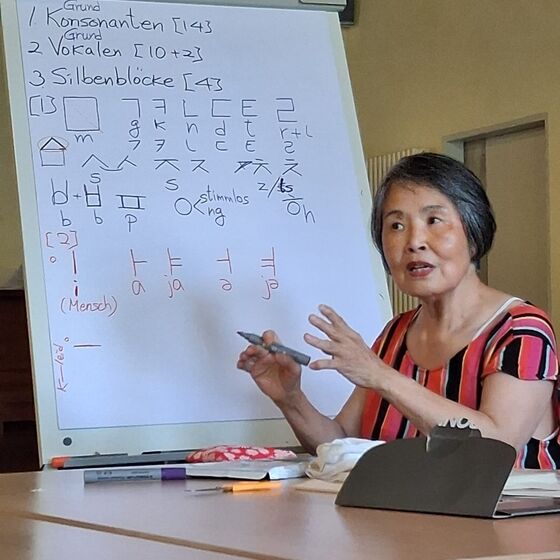 Grund
1. Konsonanten [14]
Grund
2 Vokalen [10+2]
3 Silbenblöcke [4]
[1] ㅁ ㄱ ㅋ ㄴ ㄷ ㅌ ㄹ
m g k n d t r+l
ㄱ ㅋ ㄴ ㄷ ㅌ ㄹ
ㅅ ㅈ ㅊ
s s z/ts
ㅂ ㅍ ㅇ stimmlos ㅎ
b b p ng h
[2]
ㅣ ㅏ ㅑ ㅓ ㅕ
i a ja ə jə
(Mensch)
ㅡ